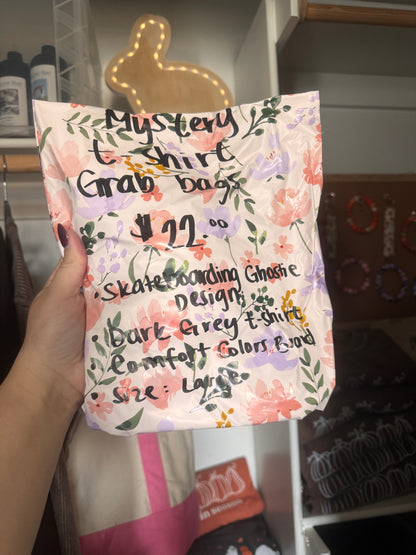 Mystery
t-shirt
Grab bags
$22.00
• Skateboarding Ghostie
Design
• Dark Grey t-shirt
• Comfort Colors Brand
• Size: Large